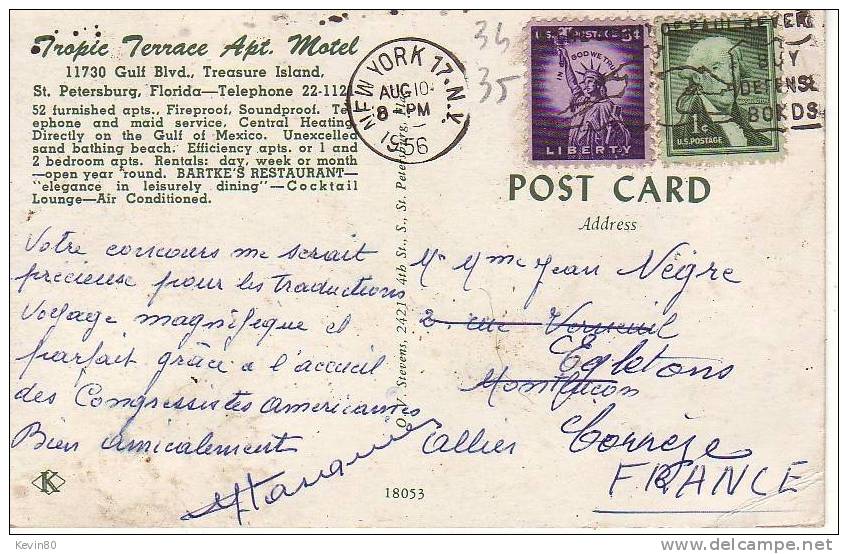 Tropic Terrace Apt. Motel
11730 Gulf Blvd., Treasure Island,
St. Petersburg, Florida—Telephone 22-1121
52 furnished apts., Fireproof, Soundproof. Tel-
ephone and maid service, Central Heating
Directly on the Gulf of Mexico. Unexcelled
sand bathing beach. Efficiency apts. or 1 and
2 bedroom apts. Rentals: day, week or month
—open year 'round. BARTKE'S RESTAURANT—
"elegance in leisurely dining"—Cocktail
Lounge—Air Conditioned.
NEW YORK 17. N.Y.
AUG 10
8 PM
1956
34
35
U.S. POSTAGE 3¢
IN GOD WE TRUST
LIBERTY
1¢
U.S. POSTAGE
OF PAUL REVERE
BUY
DEFENSE
BONDS
POST CARD
Address
Votre concours me serait
précieuse pour les traductions
Voyage magnifique et
parfait grâce a l'accueil
des Congressistes americaines
Bien amicalement
Mr Mme Jean Nègre
2. rue Verneuil
Egletons
Montluçon
Allier Corrèze
FRANCE
Stevens, 2421 4th St., S., St. Petersburg, Fla.
K
18053
Kevin80
delcampe.net